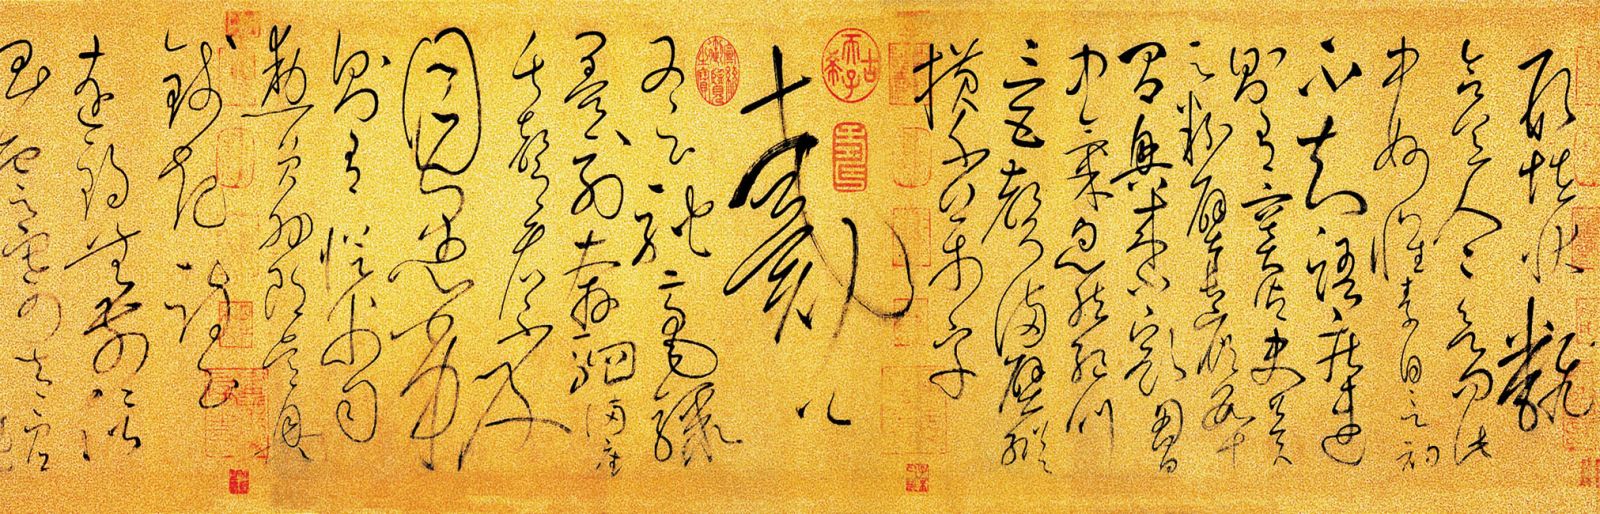 形怪狀翻
合宜人人欲問此
中妙懷素自言初
不知語疾迅
則有竇御史冀
云粉壁長廊數十
間興來小豁胸
中氣忽然絕叫
三五聲滿壁縱
橫千萬字
古希天子
戴公
又云馳毫驟
墨列奔駟滿座
失聲看不及
目愚劣
則有從父司
勳員外郎吳興
錢起詩云
遠錫無前侶
孤雲寄太虛